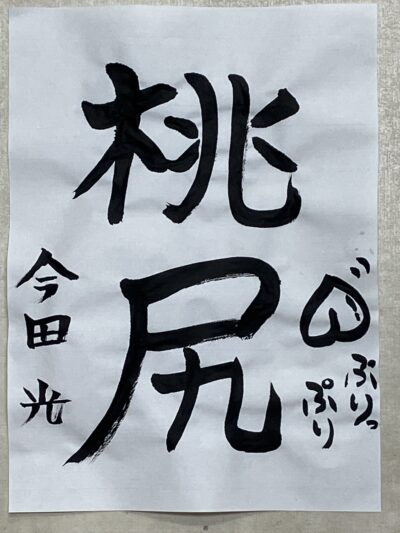 ぷりっ
ぷり
桃尻
今田 光